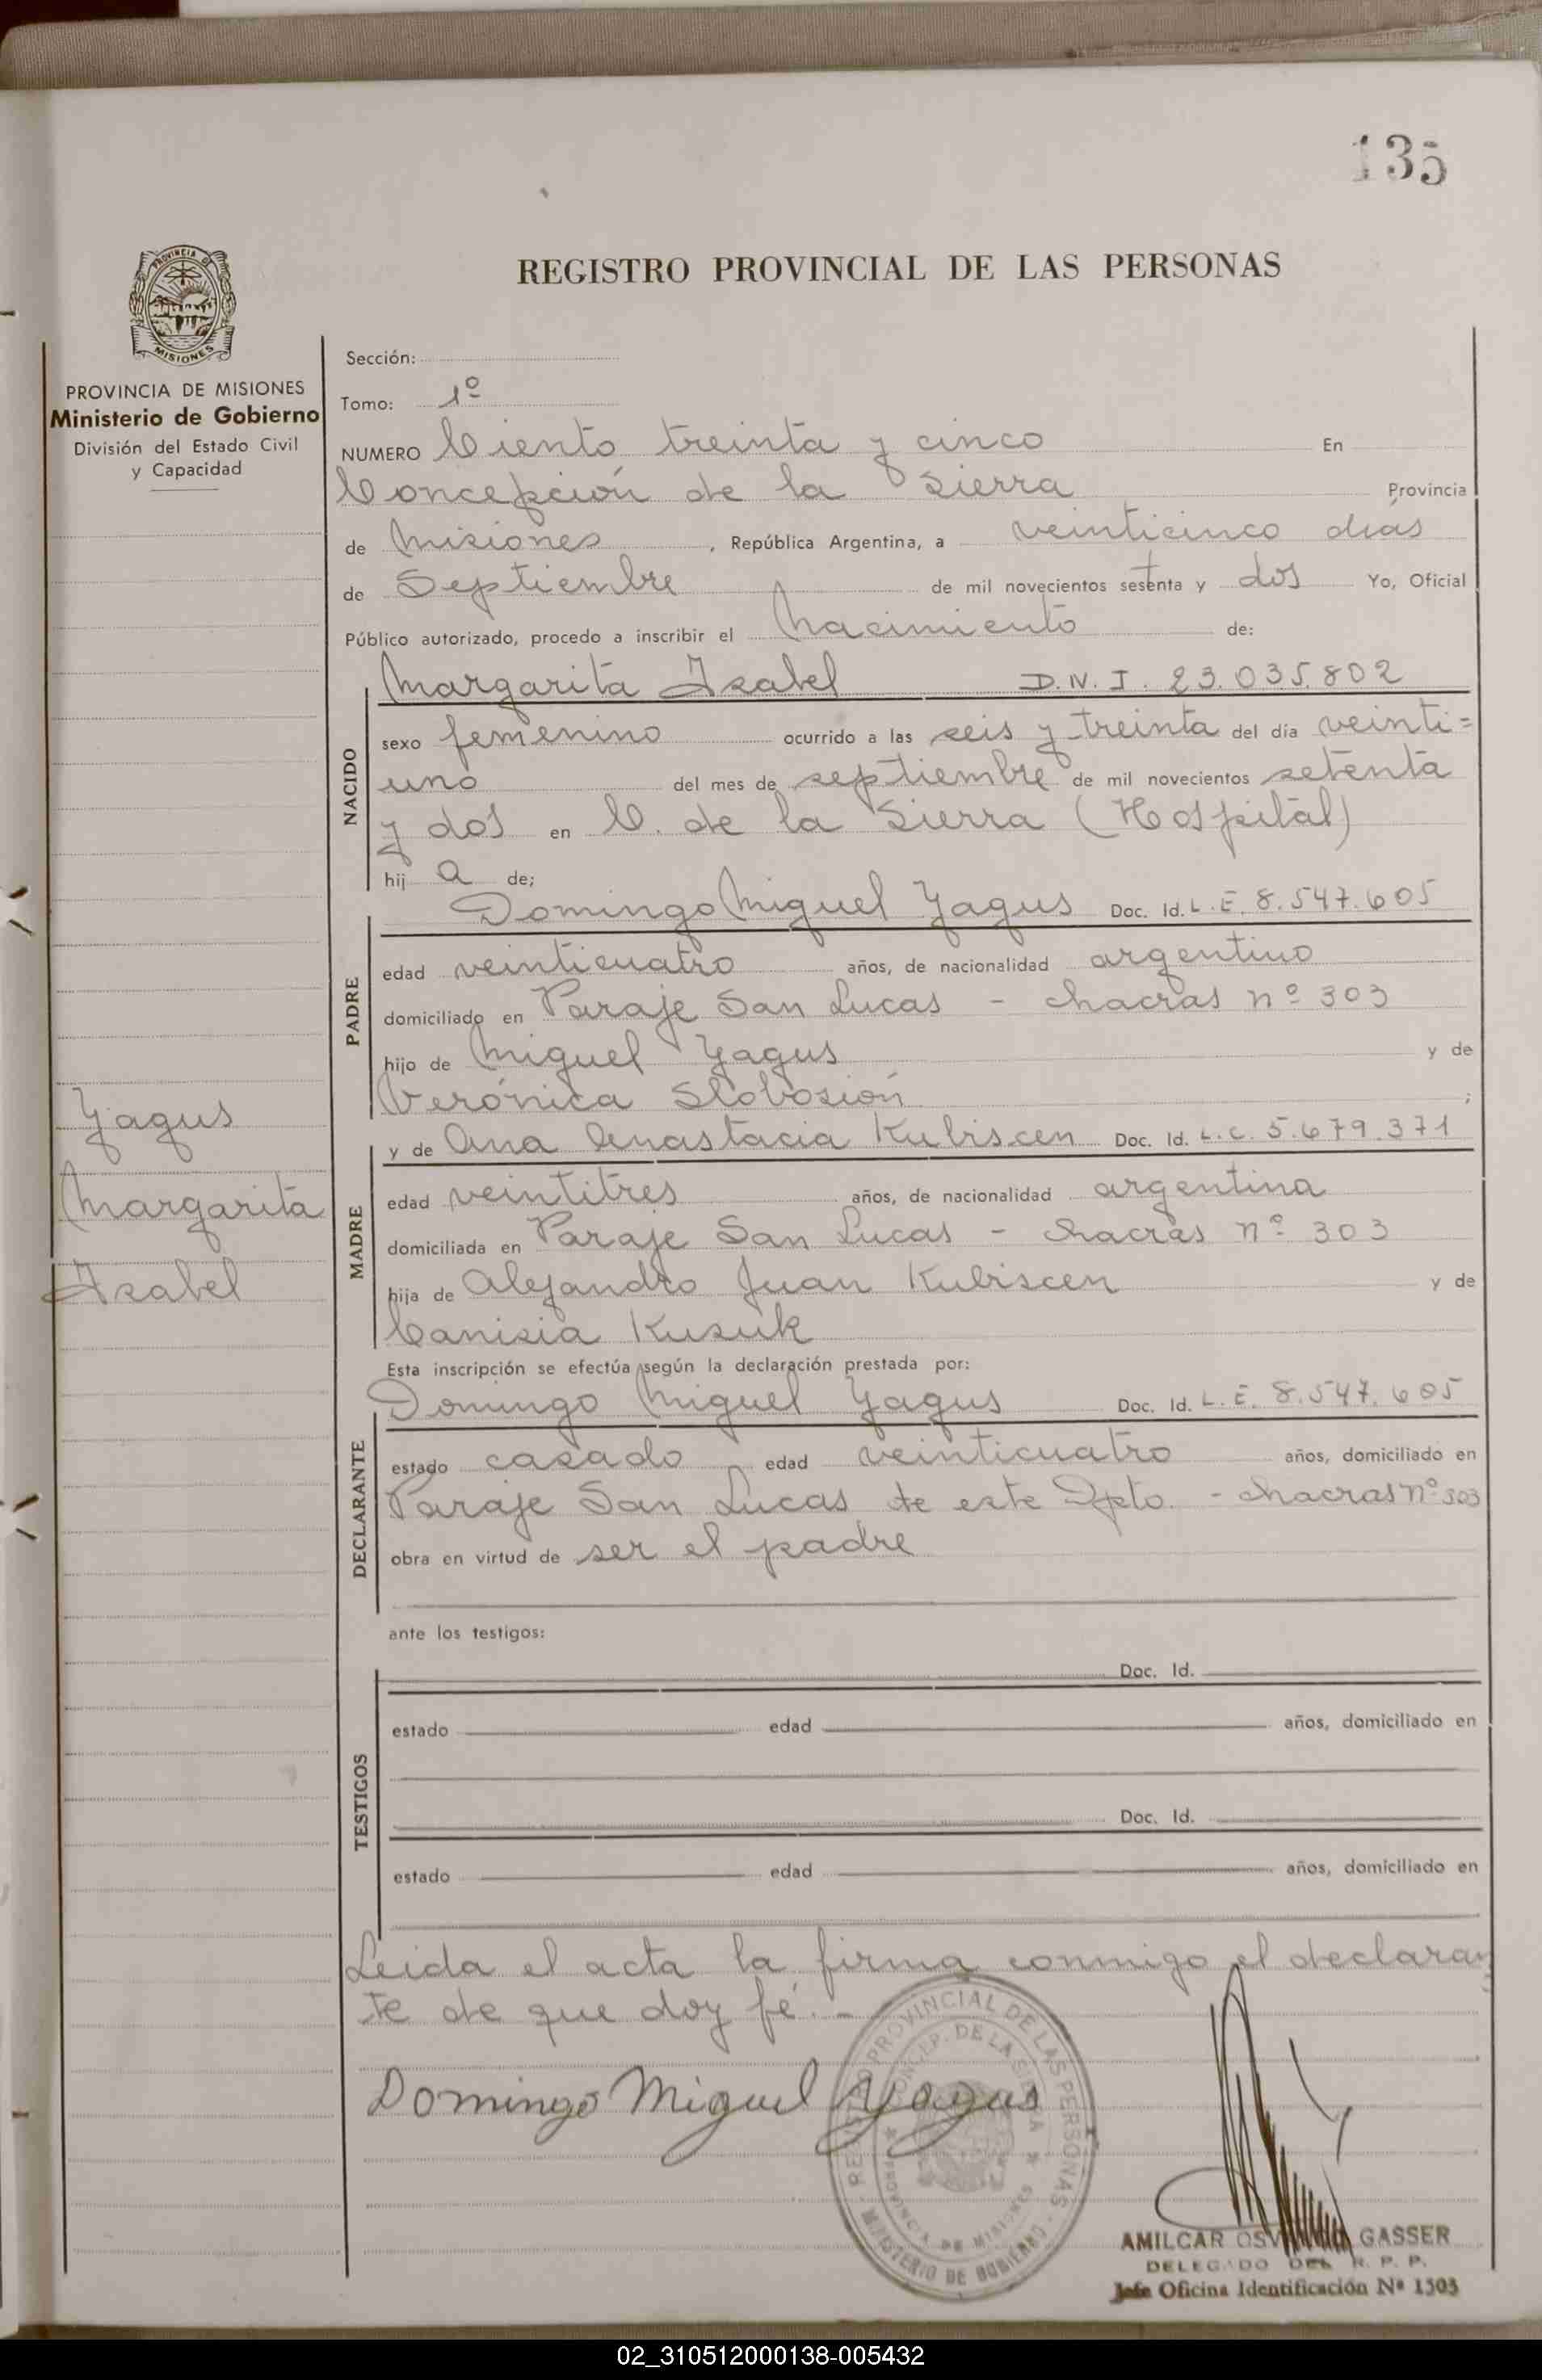 135
REGISTRO PROVINCIAL DE LAS PERSONAS
PROVINCIA DE MISIONES
PROVINCIA DE MISIONES
Ministerio de Gobierno
División del Estado Civil
y Capacidad
Sección:
Tomo: 1º
NUMERO Ciento treinta y cinco En
Concepción de la Sierra Provincia
de Misiones, República Argentina, a veinticinco días
de Septiembre de mil novecientos setenta y dos Yo, Oficial
Público autorizado, procedo a inscribir el Nacimiento de:
Margarita Isabel D.N.I. 23.035.802
NACIDO
sexo femenino ocurrido a las seis y treinta del día veinti=
uno del mes de septiembre de mil novecientos setenta
y dos en C. de la Sierra (Hospital)
hij a de;
Domingo Miguel Yagus Doc. Id. L.E. 8.547.605
PADRE
edad veinticuatro años, de nacionalidad argentino
domiciliado en Paraje San Lucas - chacras nº 303
hijo de Miguel Yagus y de
Verónica Slobosión ;
y de Ana Anastacia Kubiscen Doc. Id. L.C. 5.679.371
MADRE
edad veintitres años, de nacionalidad argentina
domiciliada en Paraje San Lucas - chacras nº 303
hija de Alejandro Juan Kubiscen y de
Canisia Kusuk
Yagus
Margarita
Isabel
Esta inscripción se efectúa según la declaración prestada por:
Domingo Miguel Yagus Doc. Id. L.E. 8.547.605
DECLARANTE
estado casado edad veinticuatro años, domiciliado en
Paraje San Lucas de este Dpto. - chacras nº 303
obra en virtud de ser el padre
ante los testigos:
TESTIGOS
Doc. Id.
estado edad años, domiciliado en
Doc. Id.
estado edad años, domiciliado en
Leida el acta la firma conmigo el declaran
te de que doy fé.-
Domingo Miguel Yagus
REGISTRO PROVINCIAL DE LAS PERSONAS - MINISTERIO DE GOBIERNO
CONCEP. DE LA SIERRA * PROVINCIA DE MISIONES *
AMILCAR OSVALDO GASSER
DELEGADO DEL R. P. P.
Jefe Oficina Identificación Nº 1503
02_310512000138-005432